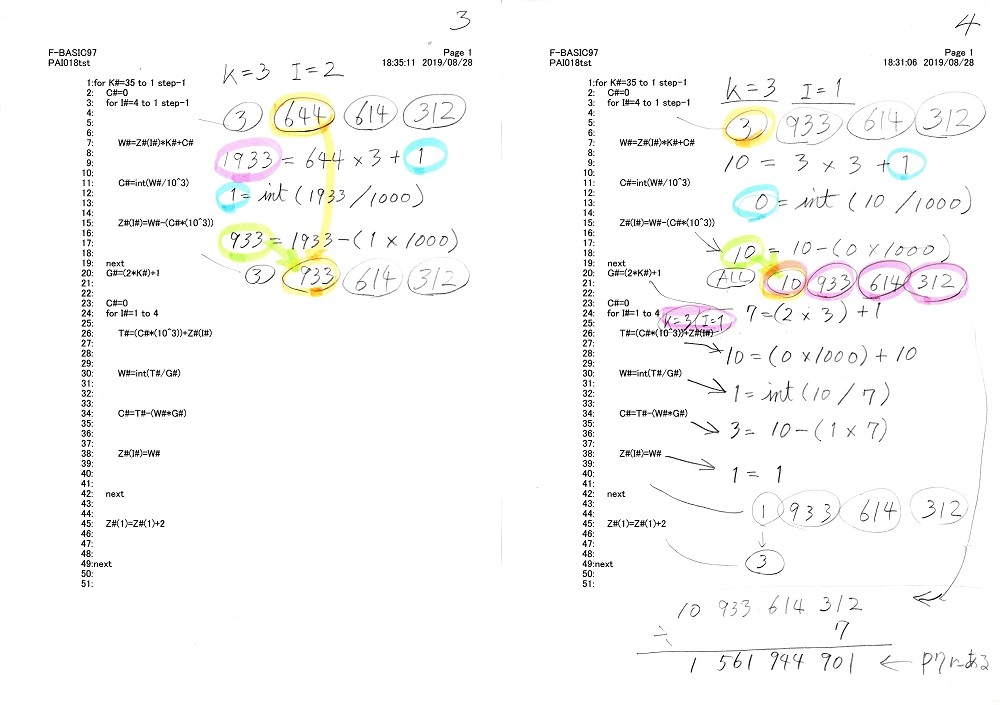 3
F-BASIC97
PAI018tst
Page 1
18:35:11 2019/08/28
K=3 I=2
1:for K#=35 to 1 step-1
2: C#=0
3: for I#=4 to 1 step-1
4:
5:
3 644 614 312
6:
7: W#=Z#(I#)*K#+C#
8:
9:
1933 = 644 × 3 + 1
10:
11: C#=int(W#/10^3)
12:
13:
1 = int (1933 / 1000)
14:
15: Z#(I#)=W#-(C#*(10^3))
16:
17:
933 = 1933 - (1 × 1000)
18:
19: next
20: G#=(2*K#)+1
21:
3 933 614 312
22:
23: C#=0
24: for I#=1 to 4
25:
26: T#=(C#*(10^3))+Z#(I#)
27:
28:
29:
30: W#=int(T#/G#)
31:
32:
33:
34: C#=T#-(W#*G#)
35:
36:
37:
38: Z#(I#)=W#
39:
40:
41:
42: next
43:
44:
45: Z#(1)=Z#(1)+2
46:
47:
48:
49:next
50:
51:
4
F-BASIC97
PAI018tst
Page 1
18:31:06 2019/08/28
K=3 I=1
1:for K#=35 to 1 step-1
2: C#=0
3: for I#=4 to 1 step-1
4:
5:
3 933 614 312
6:
7: W#=Z#(I#)*K#+C#
8:
9:
10 = 3 × 3 + 1
10:
11: C#=int(W#/10^3)
12:
13:
0 = int (10 / 1000)
14:
15: Z#(I#)=W#-(C#*(10^3))
16:
17:
10 = 10 - (0 × 1000)
18:
19: next
20: G#=(2*K#)+1
21:
ALL 10 933 614 312
22:
23: C#=0
24: for I#=1 to 4
K=3 I=1 7 = (2 × 3) + 1
25:
26: T#=(C#*(10^3))+Z#(I#)
27:
28:
10 = (0 × 1000) + 10
29:
30: W#=int(T#/G#)
31:
32:
1 = int (10 / 7)
33:
34: C#=T#-(W#*G#)
35:
36:
3 = 10 - (1 × 7)
37:
38: Z#(I#)=W#
39:
40:
1 = 1
41:
42: next
43:
44:
1 933 614 312
45: Z#(1)=Z#(1)+2
46:
47:
48:
49:next
3
50:
51:
10 933 614 312
÷ 7
1 561 944 901 ← P7にある